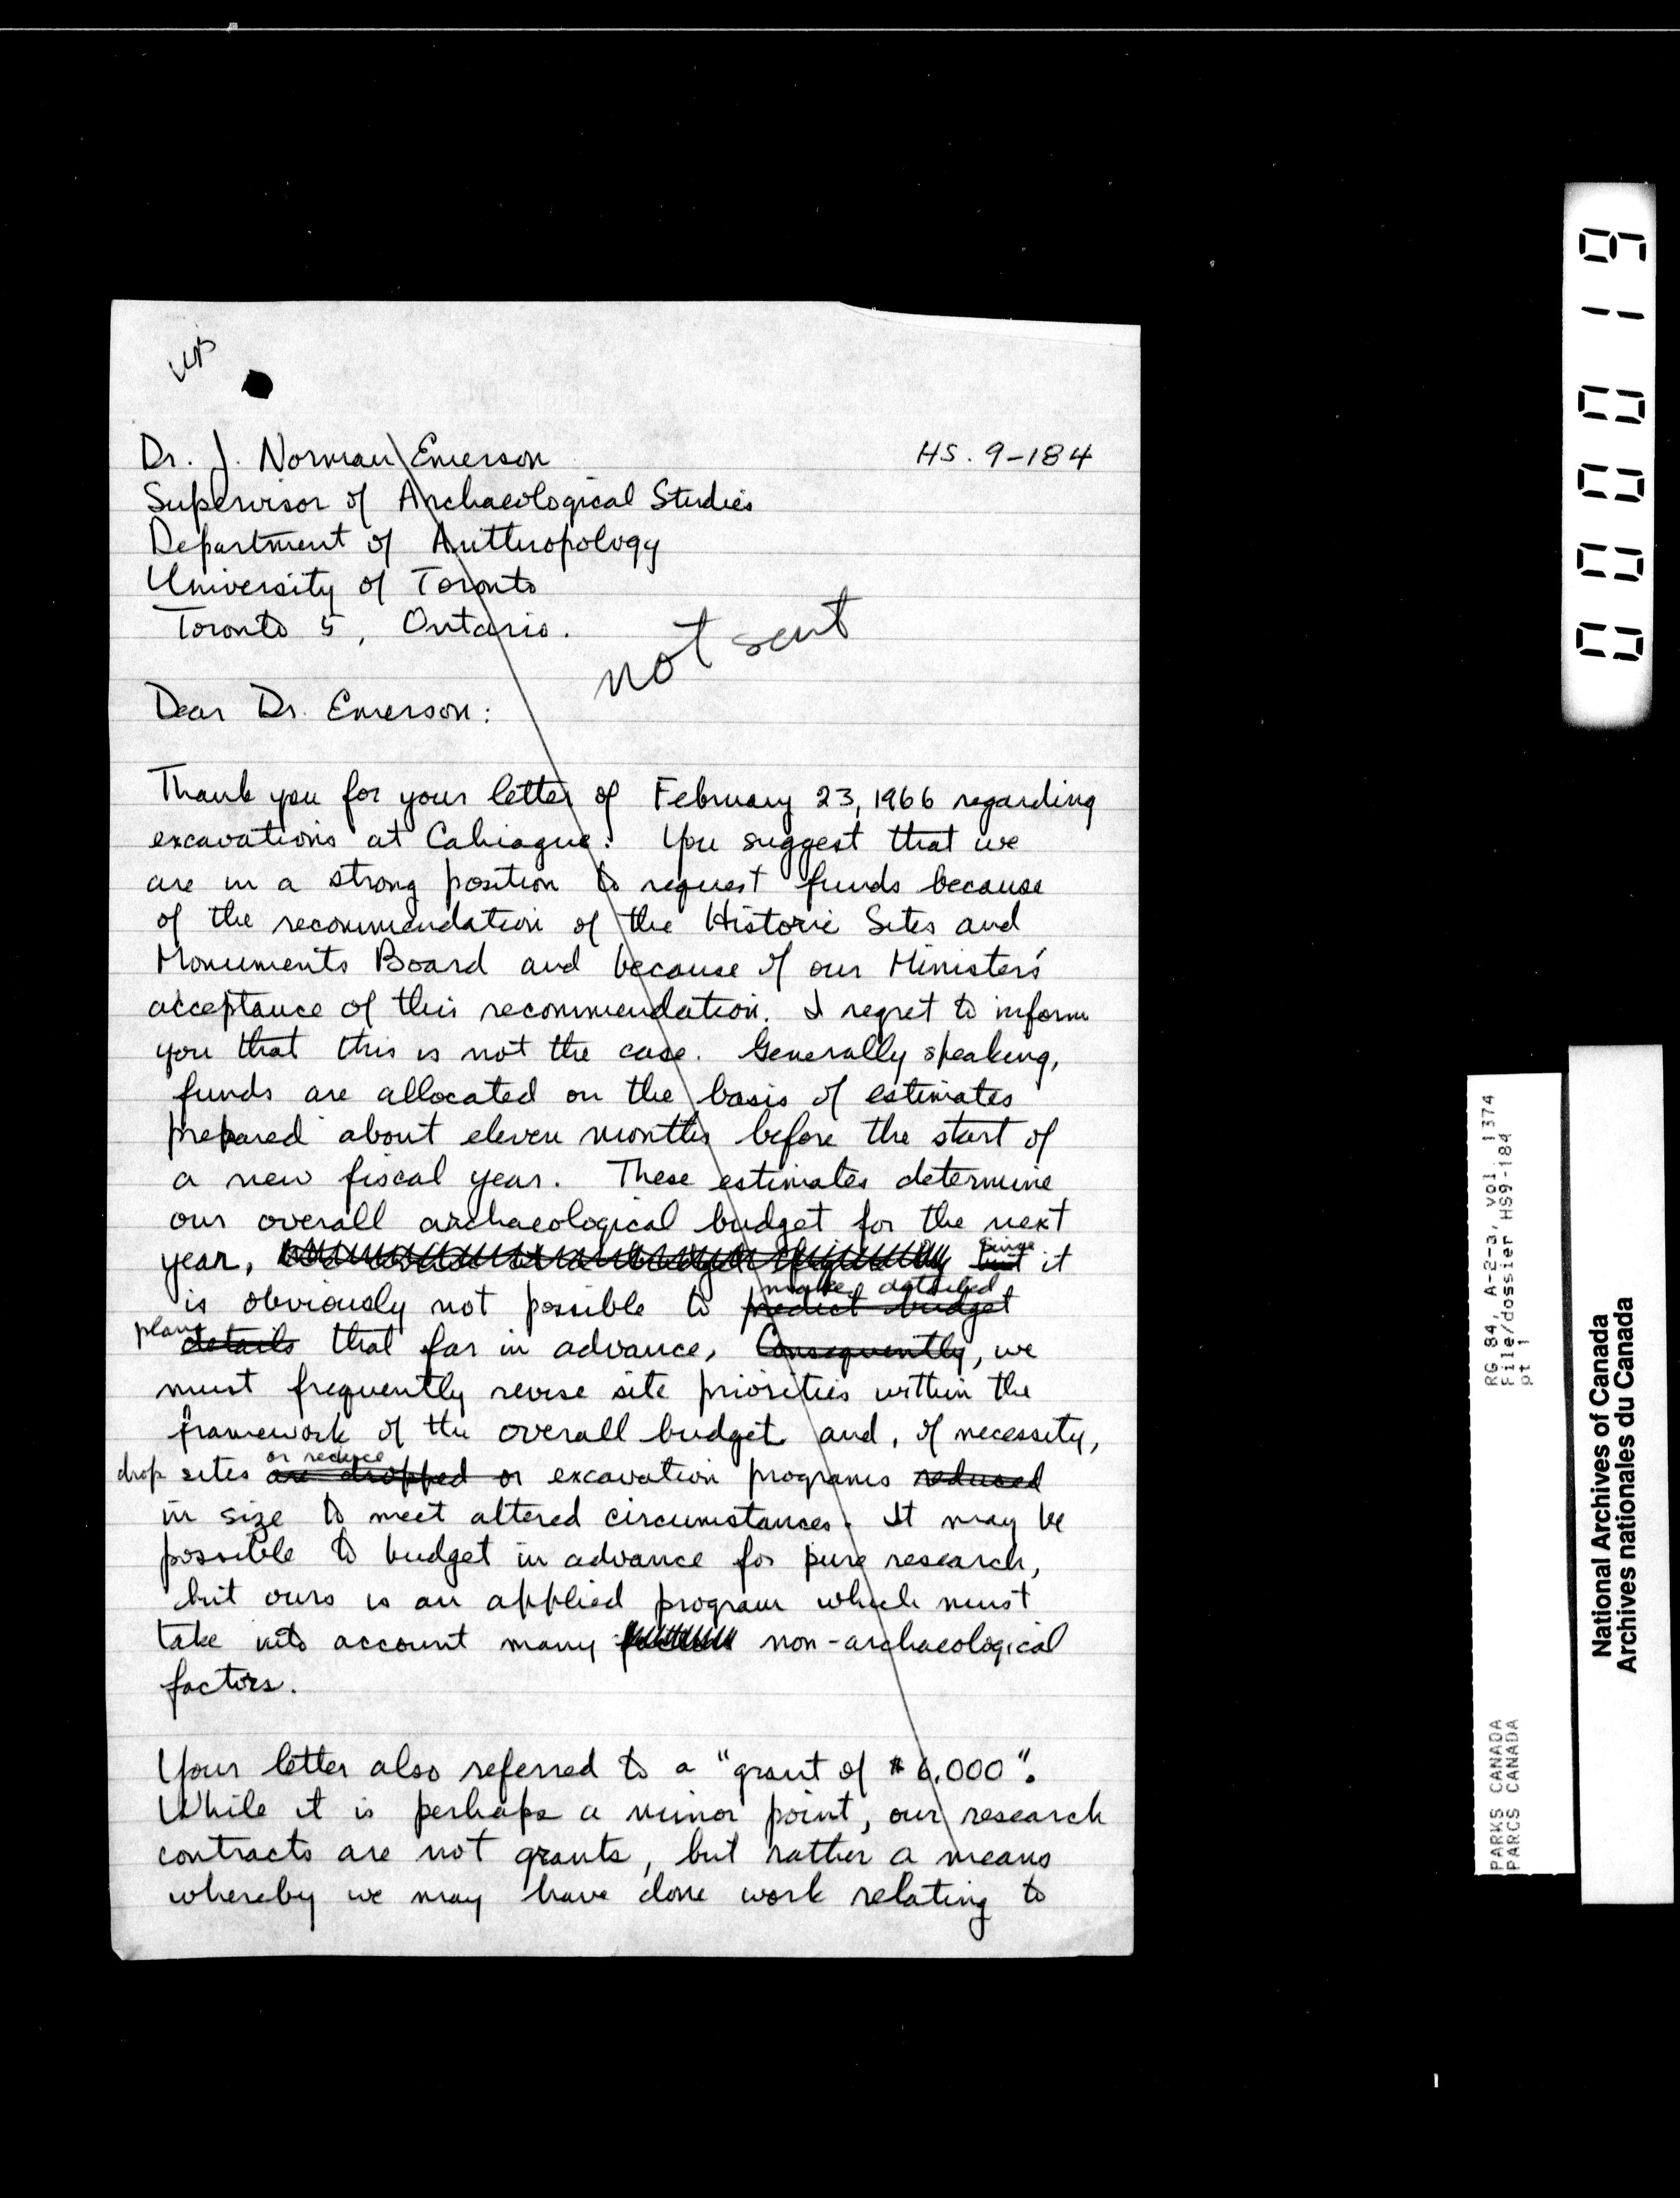 Dr. J. Norman Emerson
HS. 9-184
Supervisor of Archaeological Studies
Department of Anthropology
University of Toronto
Toronto 5, Ontario.
not sent
Dear Dr. Emerson:
Thank you for your letter of February 23, 1966 regarding
excavations at Cahiague. You suggest that we
are in a strong position to request funds because
of the recommendation of the Historic Sites and
Monuments Board and because of our Minister's
acceptance of this recommendation. I regret to inform
you that this is not the case. Generally speaking,
funds are allocated on the basis of estimates
prepared about eleven months before the start of
a new fiscal year. These estimates determine
our overall archaeological budget for the next
year, but since it
is obviously not possible to predict budget make detailed
details plans that far in advance, Consequently, we
must frequently revise site priorities within the
framework of the overall budget and, if necessity,
drop sites are dropped or reduce or excavation programs reduced
in size to meet altered circumstances. It may be
possible to budget in advance for pure research,
but ours is an applied program which must
take into account many non-archaeological
factors.
Your letter also referred to a "grant of $6,000".
While it is perhaps a minor point, our research
contracts are not grants, but rather a means
whereby we may have done work relating to
00019
RG 84, A-2-a, vol. 1374
File/dossier HS9-184
pt 1
PARKS CANADA
PARCS CANADA
National Archives of Canada
Archives nationales du Canada